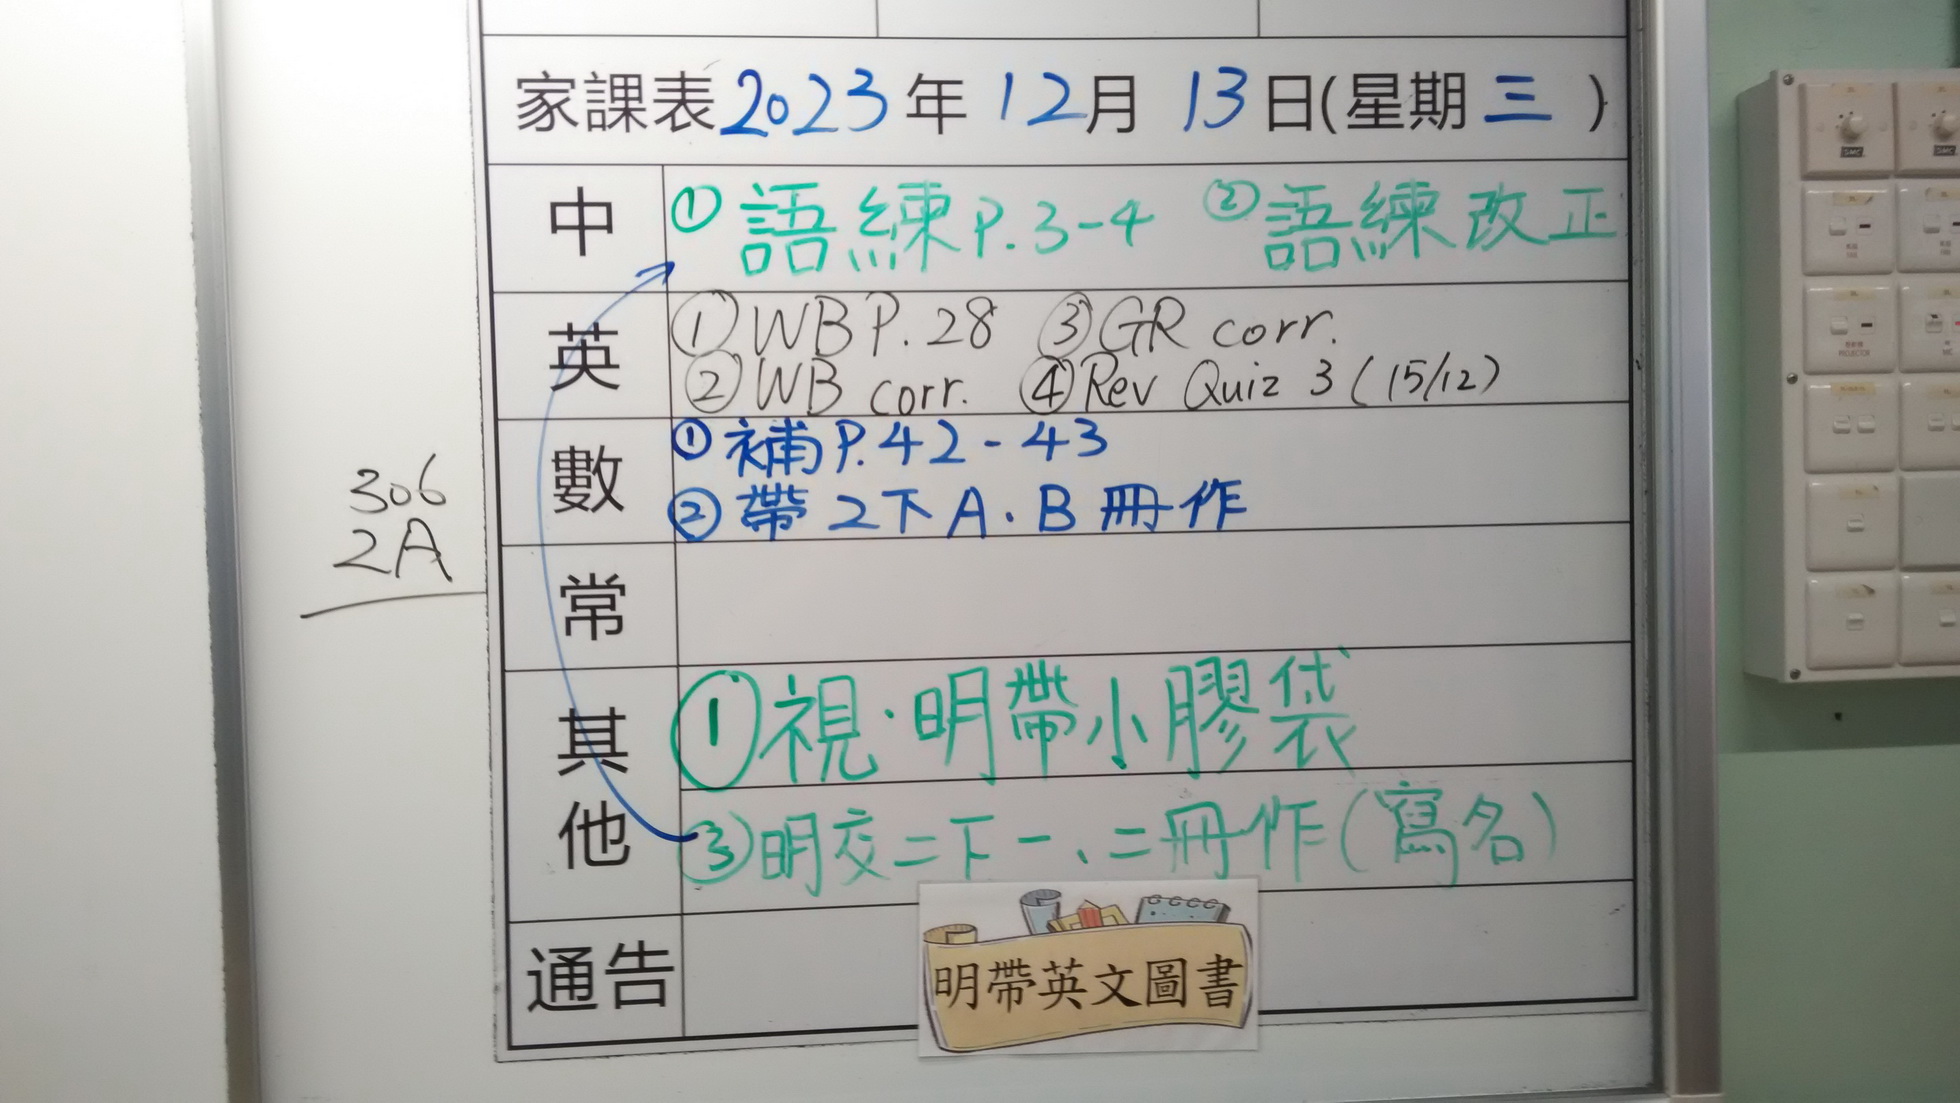 家課表 2023 年 12 月 13 日(星期 三 )
中
① 語練 P.3-4 ② 語練改正
英
① WB P.28 ③ GR corr.
② WB corr. ④ Rev Quiz 3 (15/12)
數
① 補 P.42-43
② 帶 2下 A.B 冊作
306
2A
常
其他
① 視.明帶小膠袋
③ 明交二下一、二冊作(寫名)
通告
明帶英文圖書